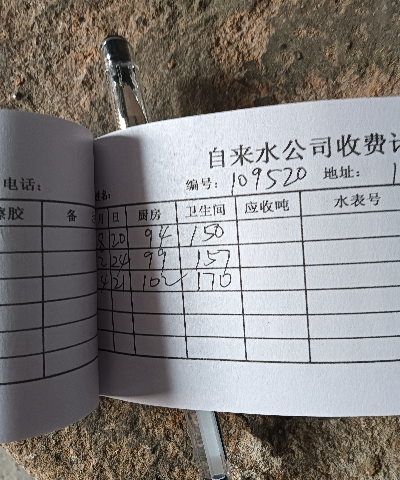 自来水公司收费
电话：
名：
编号：109520 地址：
胶 备 月 日 厨房 卫生间 应收吨 水表号
8 20 94 150
2 24 99 157
4 21 102 170